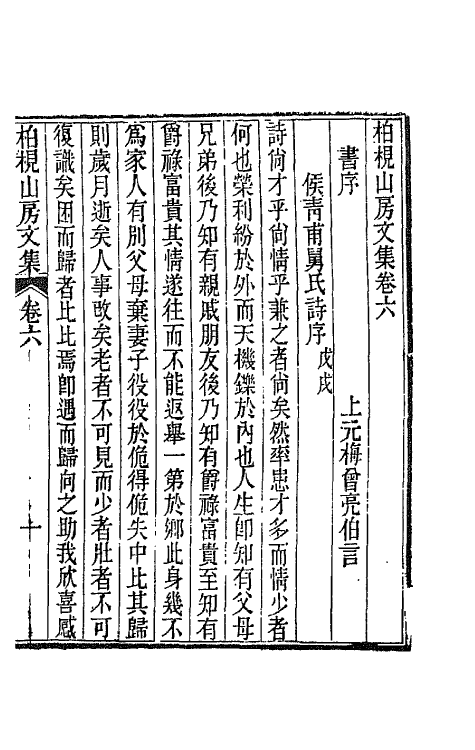 柏梘山房文集卷六
書序　　　　　　　　　上元梅曾亮伯言
侯靑甫舅氏詩序戊戌
詩尙才乎尙情乎兼之者尙矣然率患才多而情少者
何也榮利紛於外而天機鑠於內也人生卽知有父母
兄弟後乃知有親戚朋友後乃知有爵祿富貴至知有
爵祿富貴其情遂往而不能返舉一第於鄉此身幾不
爲家人有別父母棄妻子役役於佹得佹失中比其歸
則歲月逝矣人事改矣老者不可見而少者壯者不可
復識矣困而歸者比比焉卽遇而歸向之助我欣喜感
柏梘山房文集　卷六